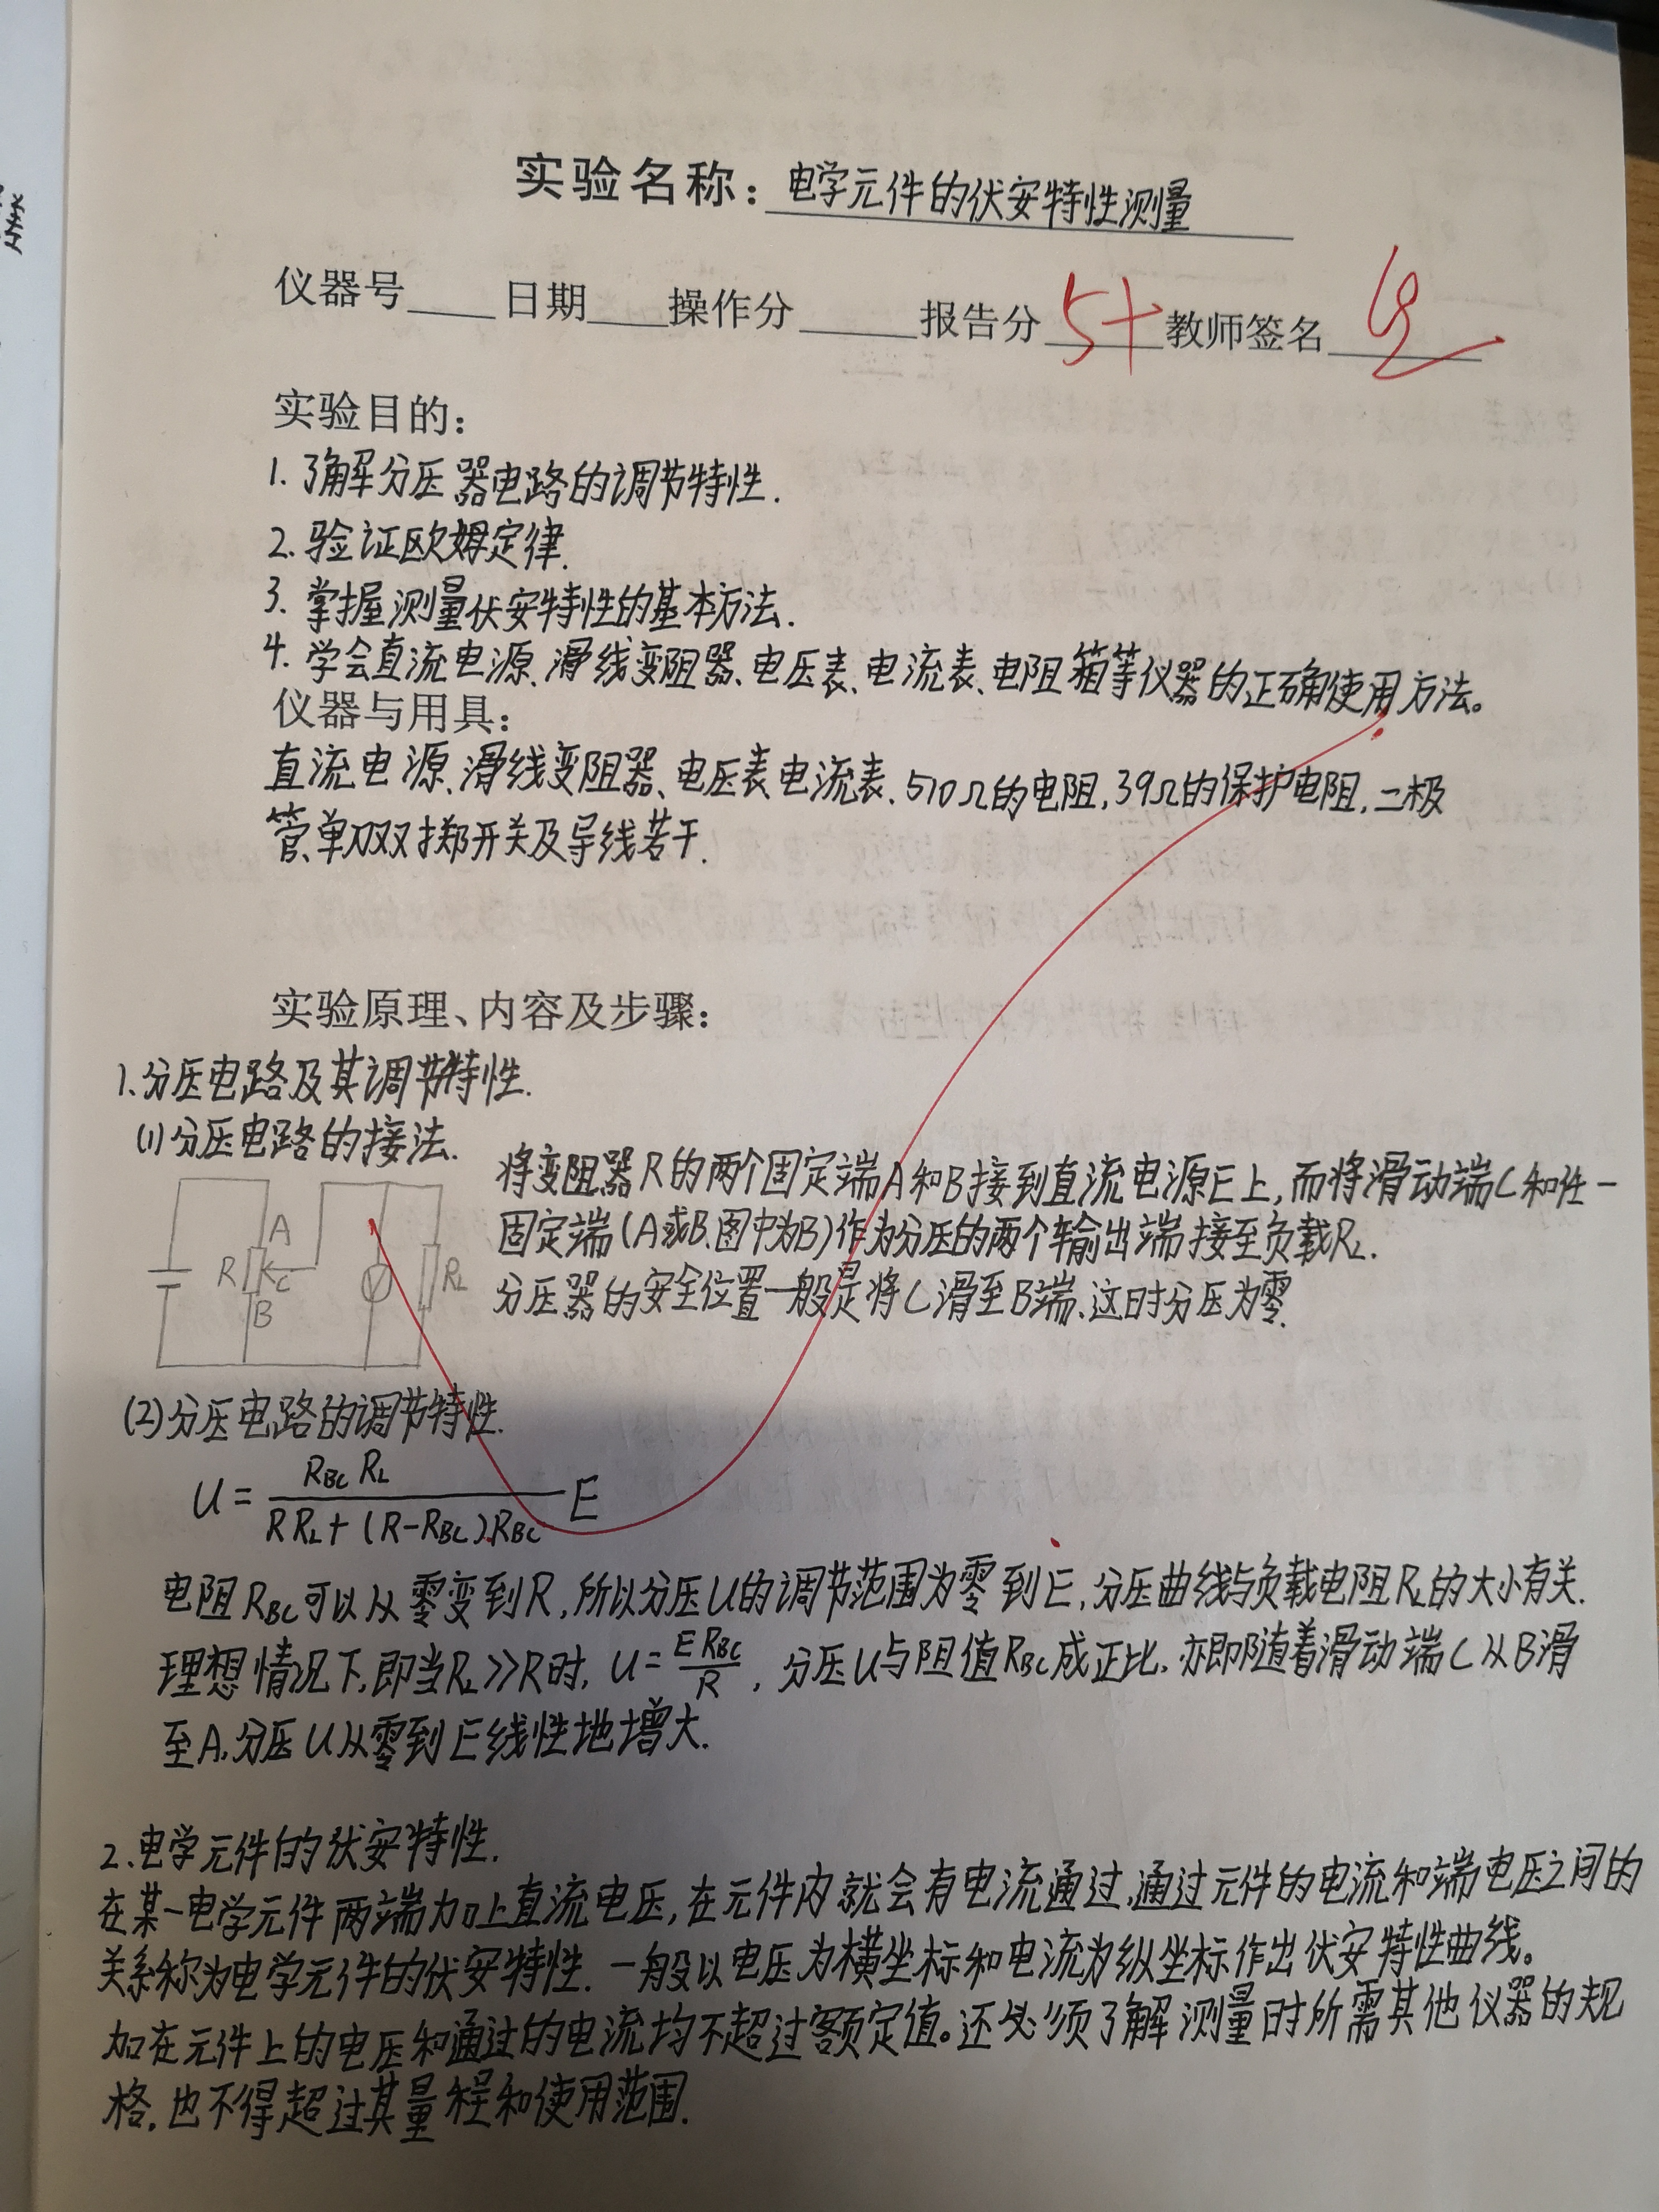 实验名称：电学元件的伏安特性测量
仪器号____日期____操作分____报告分 5+ 教师签名____
实验目的：
1.了解分压器电路的调节特性.
2.验证欧姆定律.
3.掌握测量伏安特性的基本方法.
4.学会直流电源、滑线变阻器、电压表、电流表、电阻箱等仪器的正确使用方法。
仪器与用具：
直流电源、滑线变阻器、电压表、电流表、510Ω的电阻,39Ω的保护电阻,二极
管、单刀双掷开关及导线若干.
实验原理、内容及步骤：
1.分压电路及其调节特性.
(1)分压电路的接法.
将变阻器R的两个固定端A和B接到直流电源E上,而将滑动端C和任一
固定端(A或B,图中为B)作为分压的两个输出端接至负载RL.
分压器的安全位置一般是将C滑至B端,这时分压为零.
A
R
C
B
V
RL
(2)分压电路的调节特性.
U = RBC RL / RRL+(R-RBC).RBC E
电阻RBC可以从零变到R,所以分压U的调节范围为零到E,分压曲线与负载电阻RL的大小有关.
理想情况下,即当RL>>R时, U = E RBC / R , 分压U与阻值RBC成正比,亦即随着滑动端C从B滑
至A,分压U从零到E线性地增大.
2.电学元件的伏安特性.
在某一电学元件两端加上直流电压,在元件内就会有电流通过,通过元件的电流和端电压之间的
关系称为电学元件的伏安特性.一般以电压为横坐标和电流为纵坐标作出伏安特性曲线。
加在元件上的电压和通过的电流均不超过额定值。还必须了解测量时所需其他仪器的规
格,也不得超过其量程和使用范围.